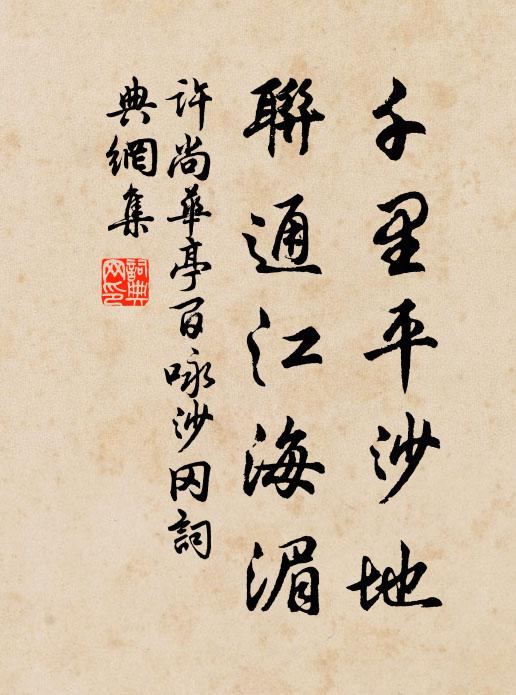 千里平沙地
聯通江海湄
許尚華亭百咏沙冈詞
典網集
詞典
网印